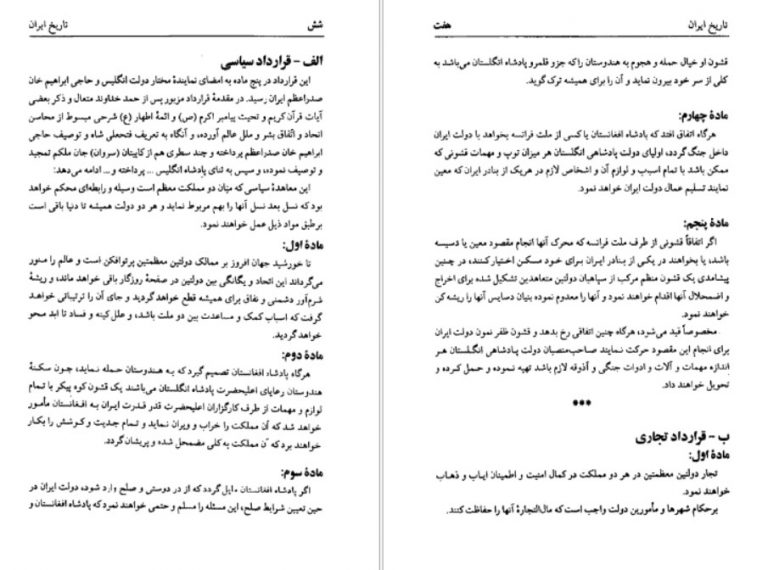 تاریخ ایران
شش
الف - قرارداد سیاسی
این قرارداد در پنج ماده به امضای نمایندهٔ مختار دولت انگلیس و حاجی ابراهیم خان
صدراعظم ایران رسید. در مقدمهٔ قرارداد مزبور پس از حمد خداوند متعال و ذکر بعضی
آیات قرآن کریم و تحیت پیامبر اکرم (ص) و ائمهٔ اطهار (ع) شرحی مبسوط از محاسن
اتحاد و اتّفاق بشر و ملل عالم آورده، و آنگاه به تعریف فتحعلی شاه و توصیف حاجی
ابراهیم خان صدراعظم پرداخته و چند سطری هم از کاپیتان (سروان) جان ملکم تمجید
و توصیف نموده، و سپس به ثنای پادشاه انگلیس ... پرداخته و ... ادامه می‌دهد:
این معاهدهٔ سیاسی که میان دو مملکت معظم است وسیله و رابطه‌ای محکم خواهد
بود که نسل بعد نسل آنها را بهم مربوط نماید و هر دو دولت همیشه تا دنیا باقی است
برطبق مواد ذیل عمل خواهند نمود.
مادهٔ اول:
تا خورشید جهان افروز بر ممالک دولتین معظمتین پرتوافکن است و عالم را منور
می‌گرداند این اتحاد و یگانگی بین دولتین در صفحهٔ روزگار باقی خواهد ماند، و ریشهٔ
شرم‌آور دشمنی و نفاق برای همیشه قطع خواهد گردید و جای آن را ترتیباتی خواهد
گرفت که اسباب کمک و مساعدت بین دو ملت باشد، و علل کینه و فساد تا ابد محو
خواهد گردید.
مادهٔ دوم:
هرگاه پادشاه افغانستان تصمیم گیرد که به هندوستان حمله نماید، چون سکنهٔ
هندوستان رعایای اعلیحضرت پادشاه انگلستان می‌باشند یک قشون کوه پیکر با تمام
لوازم و مهمات از طرف کارگزاران اعلیحضرت قدر قدرت ایران به افغانستان مأمور
خواهد شد که آن مملکت را خراب و ویران نماید و تمام جدیت و کوشش را بکار
خواهند برد که آن مملکت به کلی مضمحل شده و پریشان گردد.
مادهٔ سوم:
اگر پادشاه افغانستان مایل گردد که از در دوستی و صلح وارد شود، دولت ایران در
حین تعیین شرایط صلح، این مسئله را مسلم و حتمی خواهند نمود که پادشاه افغانستان و
تاریخ ایران
هفت
قشون او خیال حمله و هجوم به هندوستان را که جزو قلمرو پادشاه انگلستان می‌باشد به
کلی از سر خود بیرون نماید و آن را برای همیشه ترک گوید.
مادهٔ چهارم:
هرگاه اتفاق افتد که پادشاه افغانستان یا کسی از ملت فرانسه بخواهد با دولت ایران
داخل جنگ گردد، اولیای دولت پادشاهی انگلستان هر میزان توپ و مهمات قشونی که
ممکن باشد با تمام اسباب و لوازم آن و اشخاص لازم در هریک از بنادر ایران که معین
نمایند تسلیم عمال دولت ایران خواهد نمود.
مادهٔ پنجم:
اگر اتفاقاً قشونی از طرف ملت فرانسه که محرک آنها انجام مقصود معین یا دسیسه
باشد، یا بخواهند در یکی از بنادر ایران برای خود مسکن اختیار کنند، در چنین
پیشامدی یک قشون منظم مرکب از سپاهیان دولتین متعاهدین تشکیل شده برای اخراج
و اضمحلال آنها اقدام خواهند نمود و آنها را معدوم نموده بنیان دسایس آنها را ریشه کن
خواهند نمود.
مخصوصاً قید می‌شود، هرگاه چنین اتفاقی رخ بدهد و قشون ظفر نمون دولت ایران
برای انجام این مقصود حرکت نمایند صاحب‌منصبان دولت پادشاهی انگلستان هر
اندازه مهمات و آلات و ادوات جنگی و آذوقه لازم باشد تهیه نموده و حمل کرده و
تحویل خواهند داد.
***
ب - قرارداد تجاری
مادهٔ اول:
تجار دولتین معظمتین در هر دو مملکت در کمال امنیت و اطمینان ایاب و ذهاب
خواهند نمود.
برحکام شهرها و مأمورین دولت واجب است که مال‌التجارهٔ آنها را حفاظت کنند.